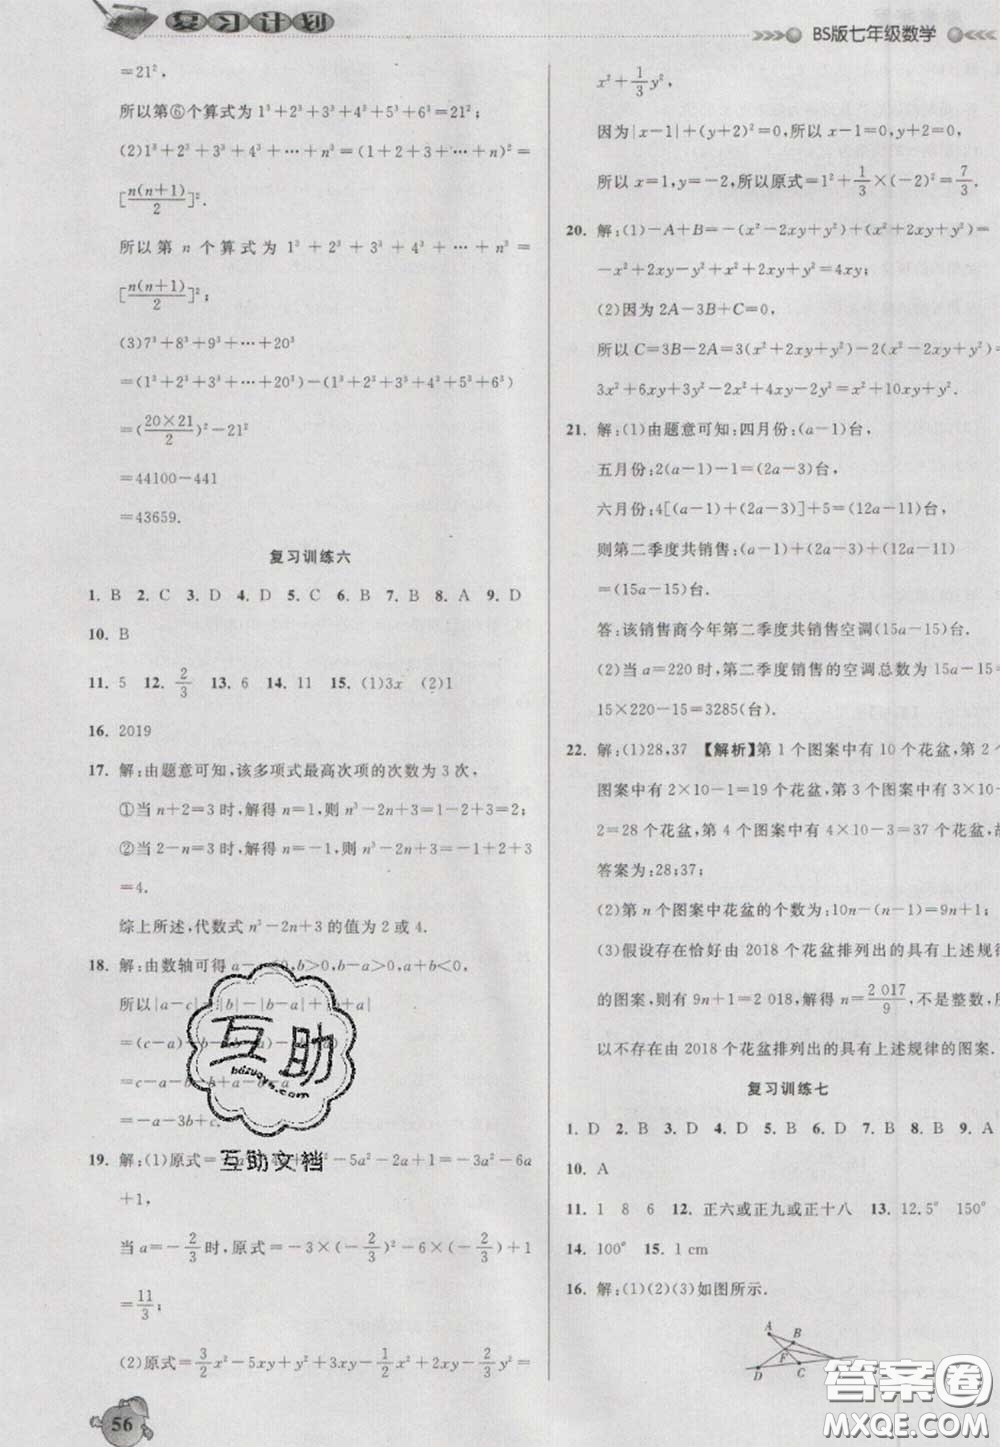 复习计划
BS版七年级数学
=21²,
所以第⑥个算式为 1³+2³+3³+4³+5³+6³=21²;
(2)1³+2³+3³+4³+⋯+n³=(1+2+3+⋯+n)²=
[n(n+1)/2]².
所以第 n 个算式为 1³+2³+3³+4³+⋯+n³=
[n(n+1)/2]²;
(3)7³+8³+9³+⋯+20³
=(1³+2³+3³+⋯+20³)-(1³+2³+3³+4³+5³+6³)
=(20×21/2)²-21²
=44100-441
=43659.
复习训练六
1. B 2. C 3. D 4. D 5. C 6. B 7. B 8. A 9. D
10. B
11. 5 12. 2/3 13. 6 14. 11 15. (1)3x (2)1
16. 2019
17. 解:由题意可知,该多项式最高次项的次数为 3 次,
①当 n+2=3 时,解得 n=1,则 n³-2n+3=1-2+3=2;
②当 2-n=3 时,解得 n=-1,则 n³-2n+3=-1+2+3
=4.
综上所述,代数式 n³-2n+3 的值为 2 或 4.
18. 解:由数轴可得 a- 0,b>0,b-a>0,a+b<0,
所以|a-c|+|b|-|b-a|+|b+a|
=(c-a)
=c-a
=-a-3b+c.
19. 解:(1)原式= -5a²-2a+1=-3a²-6a
+1,
当 a=-2/3时,原式=-3×(-2/3)²-6×(-2/3)+1
=11/3;
(2)原式=3/2x²-5xy+y²+3xy+3y²-1/2x²+2xy-2/3y²=
x²+1/3y²,
因为|x-1|+(y+2)²=0,所以 x-1=0,y+2=0,
所以 x=1,y=-2,所以原式=1²+1/3×(-2)²=7/3.
20. 解:(1)-A+B=-(x²-2xy+y²)+(x²+2xy+y²)=
-x²+2xy-y²+x²+2xy+y²=4xy;
(2)因为 2A-3B+C=0,
所以 C=3B-2A=3(x²+2xy+y²)-2(x²-2xy+y²)=
3x²+6xy+3y²-2x²+4xy-2y²=x²+10xy+y².
21. 解:(1)由题意可知:四月份:(a-1)台,
五月份:2(a-1)-1=(2a-3)台,
六月份:4[(a-1)+(2a-3)]+5=(12a-11)台,
则第二季度共销售:(a-1)+(2a-3)+(12a-11)
=(15a-15)台.
答:该销售商今年第二季度共销售空调(15a-15)台.
(2)当 a=220 时,第二季度销售的空调总数为 15a-15=
15×220-15=3285(台).
22. 解:(1)28,37 【解析】第 1 个图案中有 10 个花盆,第 2
图案中有 2×10-1=19 个花盆,第 3 个图案中有 3×10-
2=28 个花盆,第 4 个图案中有 4×10-3=37 个花盆,故
答案为:28;37;
(2)第 n 个图案中花盆的个数为:10n-(n-1)=9n+1;
(3)假设存在恰好由 2018 个花盆排列出的具有上述规律
的图案,则有 9n+1=2 018,解得 n=2 017/9,不是整数,所
以不存在由 2018 个花盆排列出的具有上述规律的图案.
复习训练七
1. D 2. B 3. D 4. D 5. B 6. D 7. B 8. B 9. A
10. A
11. 1 8 6 12. 正六或正九或正十八 13. 12.5° 150°
14. 100° 15. 1 cm
16. 解:(1)(2)(3)如图所示.
A
B
F
D
C
56
互助
hdzuoye.com
互助文档
答案圈
MXQE.COM